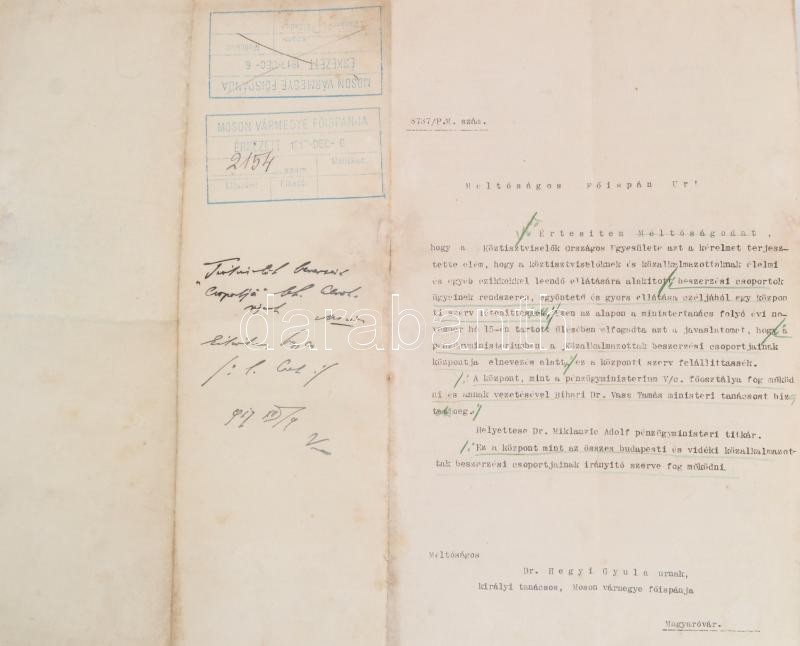 MOSON VÁRMEGYE FŐISPÁNJA
ÉRKEZETT 1917-DEC-6
MOSON VÁRMEGYE FŐISPÁNJA
ÉRKEZETT 1917-DEC-6
2154
szám
Melléklet
Előadó
8737/P.M. szám.
Méltóságos Főispán Ur!
Értesitem Méltóságodat,
hogy a Köztisztviselők Országos Egyesülete azt a kérelmet terjesz-
tette elém, hogy a köztisztviselőknek és közalkalmazottaknak élelmi
és egyéb czikkekkel leendő ellátására alakitott beszerzési csoportok
ügyeinek rendszeres, egyöntetü és gyors ellátása czéljából egy központ
ti szerv létesittessék. Ezen az alapon a ministertanács folyó évi no-
vember hó 15-én tartott ülésében elfogadta azt a javaslatomet, hogy a
pénzügyministeriumben a közalkalmazottak beszerzési csoportjainak
központja elnevezés alatt ez a központi szerv felállittassék.
A központ, mint a pénzügyministerium V/c. főosztálya fog működ
ni és annak vezetésével Bihari Dr. Vass Tamás ministeri tanácsost biz
tam meg.
Helyettese Dr. Miklauzic Adolf pénzügyministeri titkár.
Ez a központ mint az összes budapesti és vidéki közalkalmazot-
tak beszerzési csoportjainak irányitó szerve fog működni.
Méltóságos
Dr. Hegyi Gyula urnak,
királyi tanácsos, Moson vármegye főispánja
Magyaróvár.
darabanth